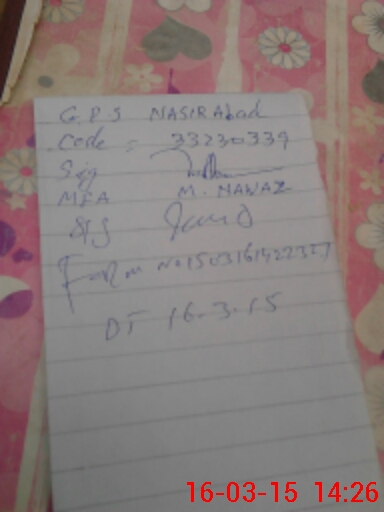 G.P.S NASIRAbad
Code = 33230339
Sig
MEA M. NAWAZ
Sig
Form No 
DT 16-3-15
16-03-15 14:26